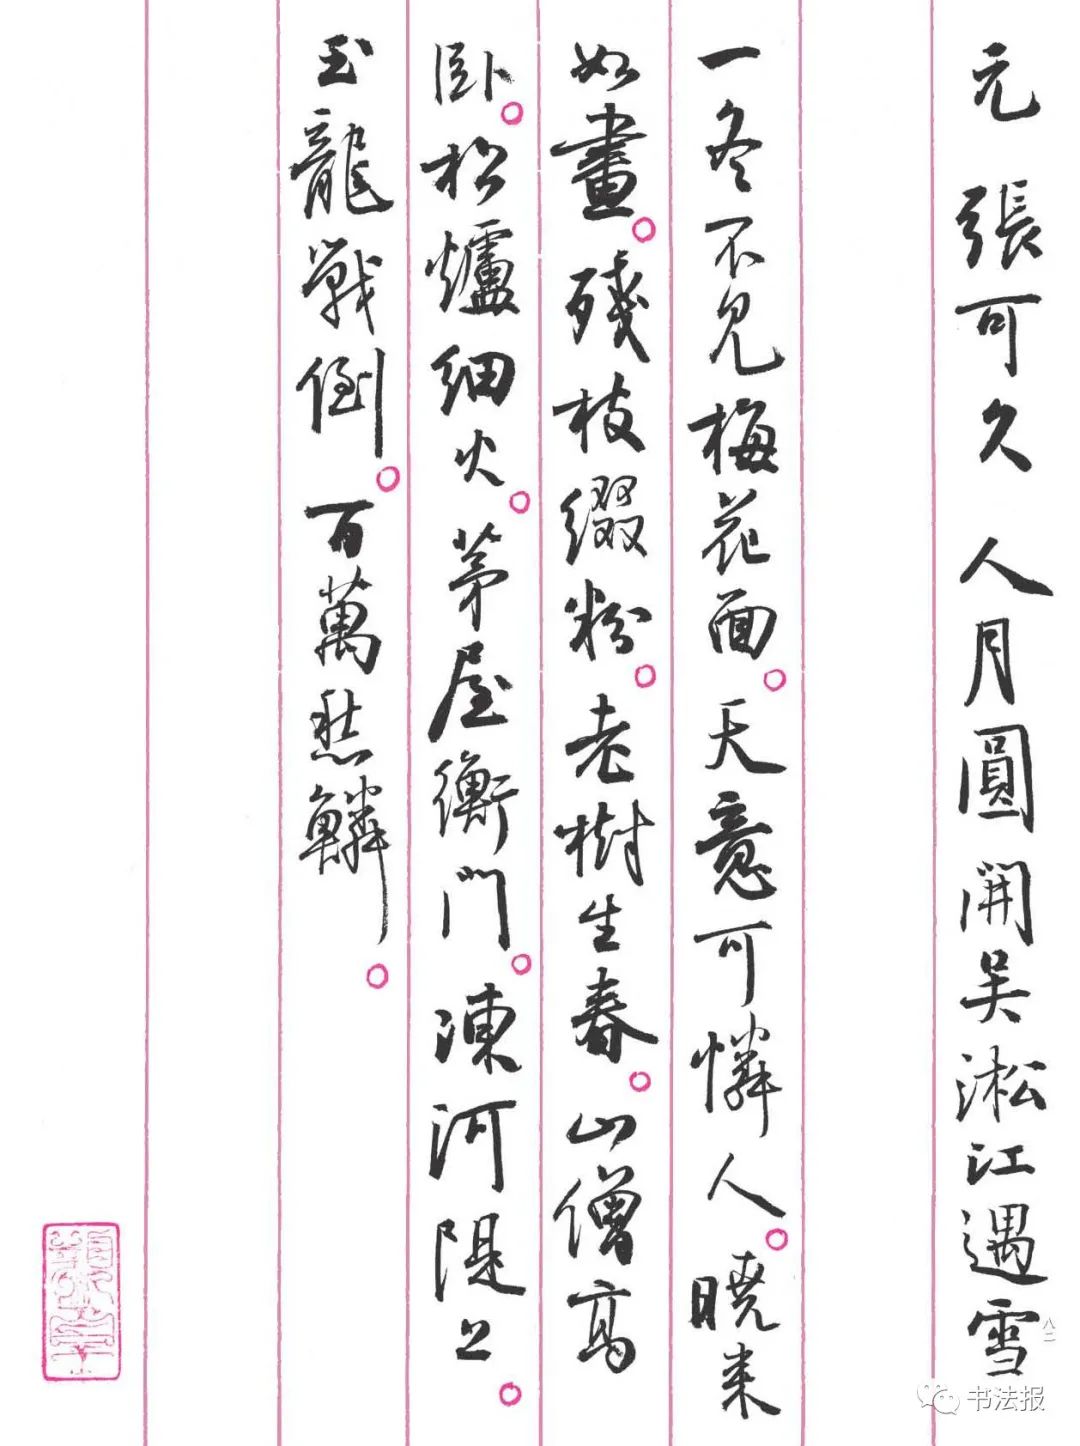 元 張可久 人月圓 開吴淞江遇雪
一冬不見梅花面。天意可憐人。曉来
如畫。殘枝綴粉。老樹生春。山僧高
臥。松爐細火。茅屋衡門。凍河隄上。
玉龍戰倒。百萬愁鱗。
八二
书法报